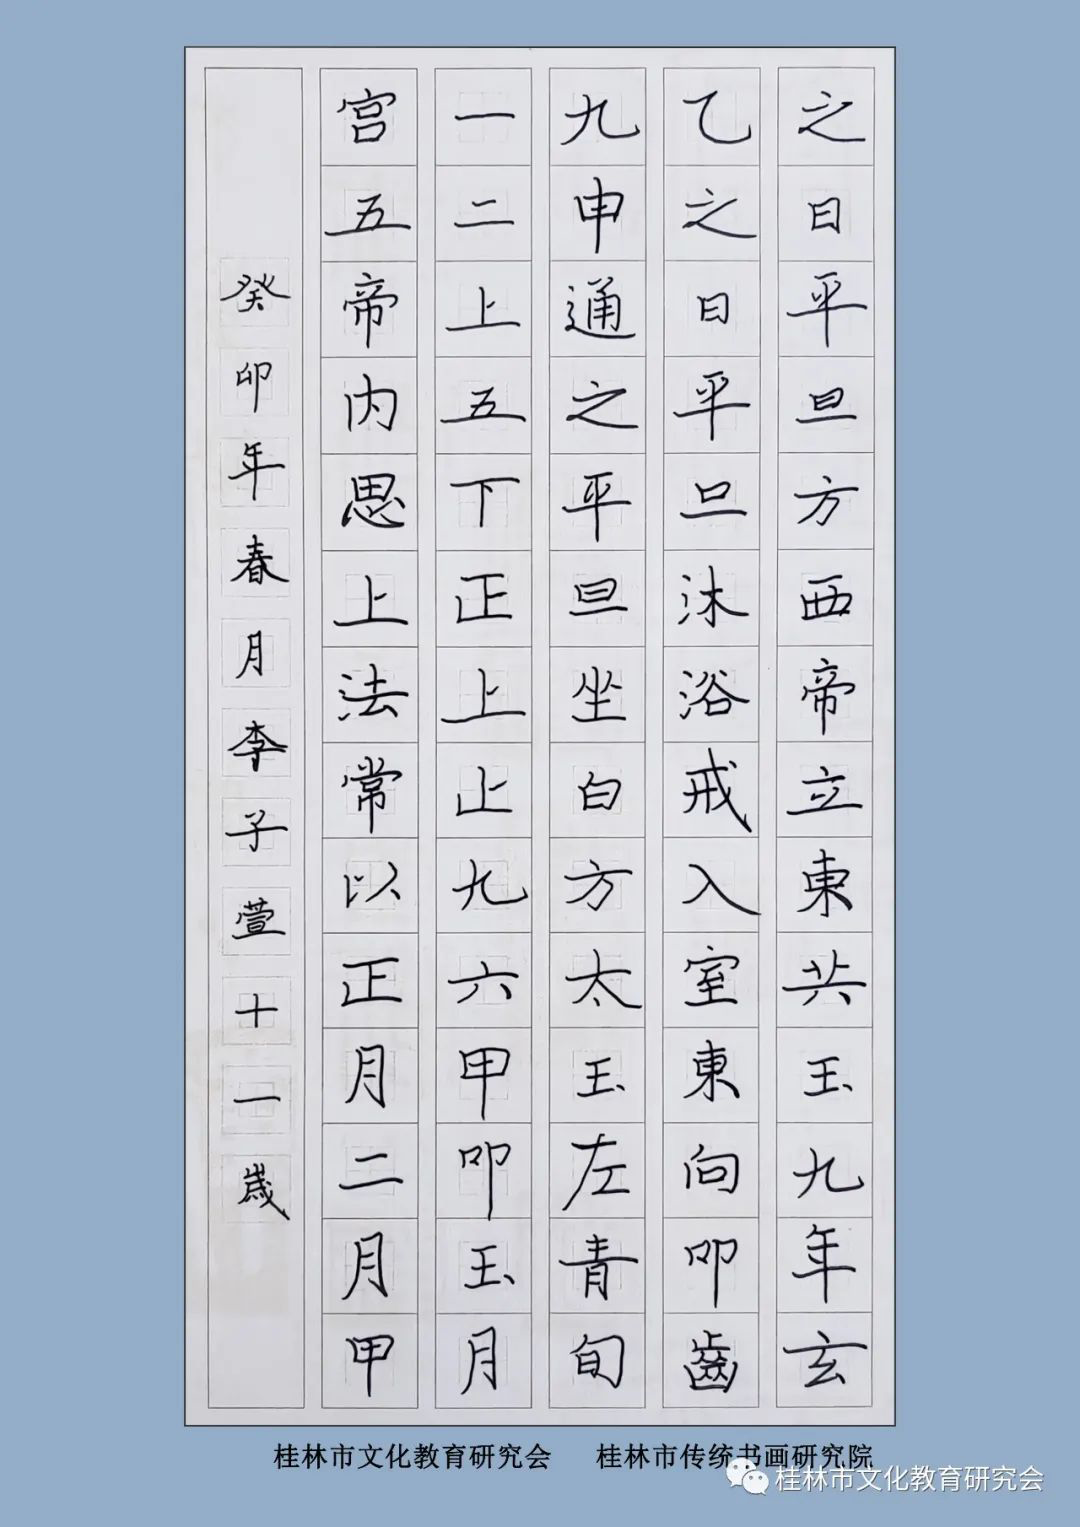 之日平旦方西帝立東共玉九年玄
乙之日平旦沐浴戒入室東向叩齒
九申通之平旦坐白方太玉左青旬
一二上五下正上止九六甲叩玉月
宫五帝内思上法常以正月二月甲
癸卯年春月李子萱十一歲
桂林市文化教育研究会 桂林市传统书画研究院
桂林市文化教育研究会